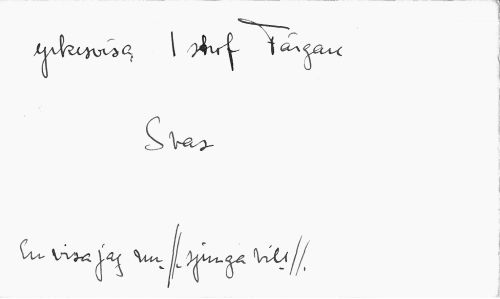 yrkesvisa 1 strof Färgare
Svas
En visa jag nu //: sjunga vill ://